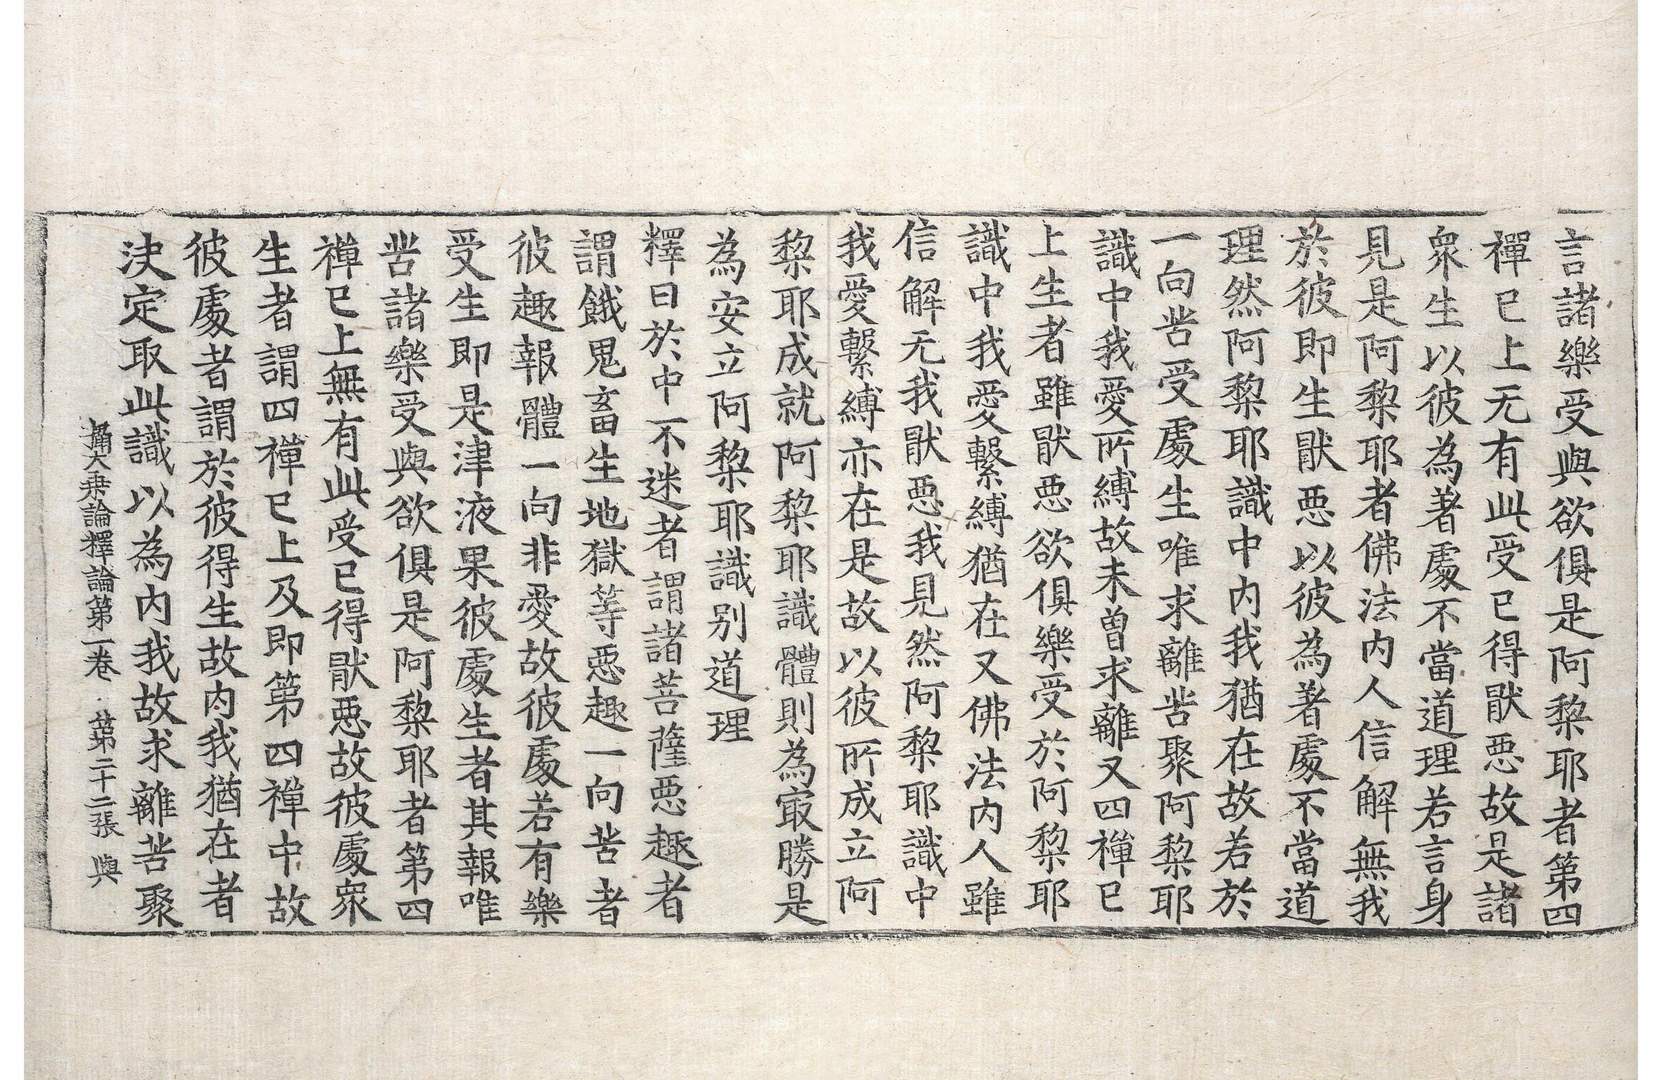 言諸樂受與欲俱是阿黎耶者第四
禪已上无有此受已得猒惡故是諸
衆生以彼為著處不當道理若言身
見是阿黎耶者佛法內人信解無我
於彼即生猒惡以彼為著處不當道
理然阿黎耶識中內我猶在故若於
一向苦受處生唯求離苦聚阿黎耶
識中我愛所縛故未曾求離又四禪已
上生者雖猒惡欲俱樂受於阿黎耶
識中我愛繫縛猶在又佛法內人雖
信解无我猒惡我見然阿黎耶識中
我愛繫縛亦在是故以彼所成立阿
黎耶成就阿黎耶識體則為寂勝是
為安立阿黎耶識別道理
釋曰於中不迷者謂諸菩薩惡趣者
謂餓鬼畜生地獄等惡趣一向苦者
彼趣報體一向非愛故彼處若有樂
受生即是津液果彼處生者其報唯
苦諸樂受與欲俱是阿黎耶者第四
禪已上無有此受已得猒惡故彼處衆
生者謂四禪已上及即第四禪中故
彼處者謂於彼得生故內我猶在者
決定取此識以為內我故求離苦聚
攝大乘論釋論第一卷 第二十二張 與